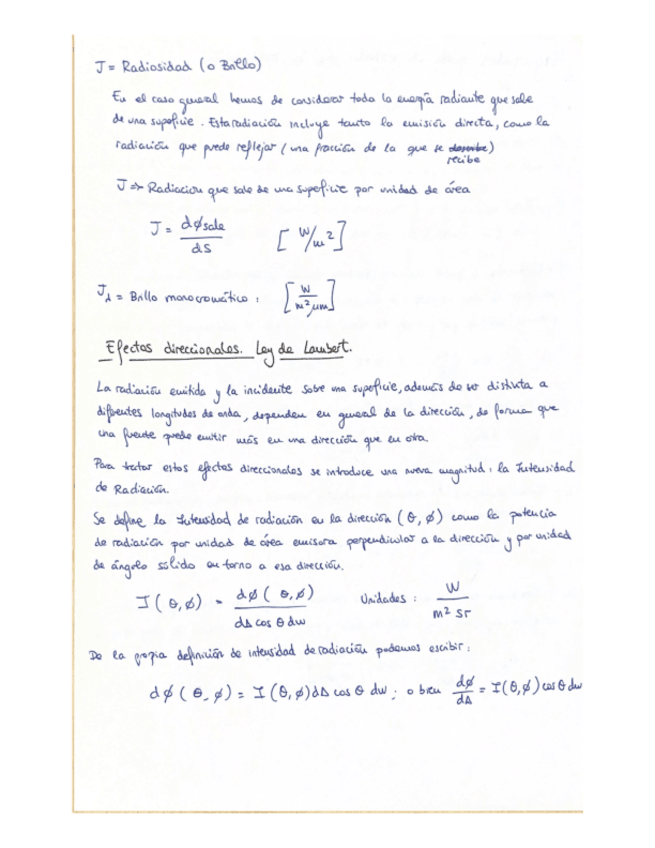 J = Radiosidad (o Brillo)
En el caso general hemos de considerar toda la energía radiante que sale
de una superficie. Esta radiación incluye tanto la emisión directa, como la
radiación que puede reflejar (una fracción de la que se recibe)
J => Radiacion que sale de una superficie por unidad de área
J = dφsale / dS [W/m²]
Jλ = Brillo monocromático: [W / m² μm]
Efectos direccionales. Ley de Lambert.
La radiación emitida y la incidente sobre una superficie, además de ser distinta a
diferentes longitudes de onda, dependen en general de la dirección, de forma que
una fuente puede emitir más en una dirección que en otra.
Para tratar estos efectos direccionales se introduce una nueva magnitud: la Intensidad
de Radiación.
Se define la Intensidad de radiación en la dirección (θ, φ) como la potencia
de radiación por unidad de área emisora perpendicular a la dirección y por unidad
de ángulo sólido en torno a esa dirección.
I(θ,φ) = dφ(θ,φ) / dA cos θ dw Unidades: W / m² sr
De la propia definición de intensidad de radiación podemos escribir:
dφ(θ,φ) = I(θ,φ)dA cos θ dw; o bien dφ/dA = I(θ,φ) cos θ dw